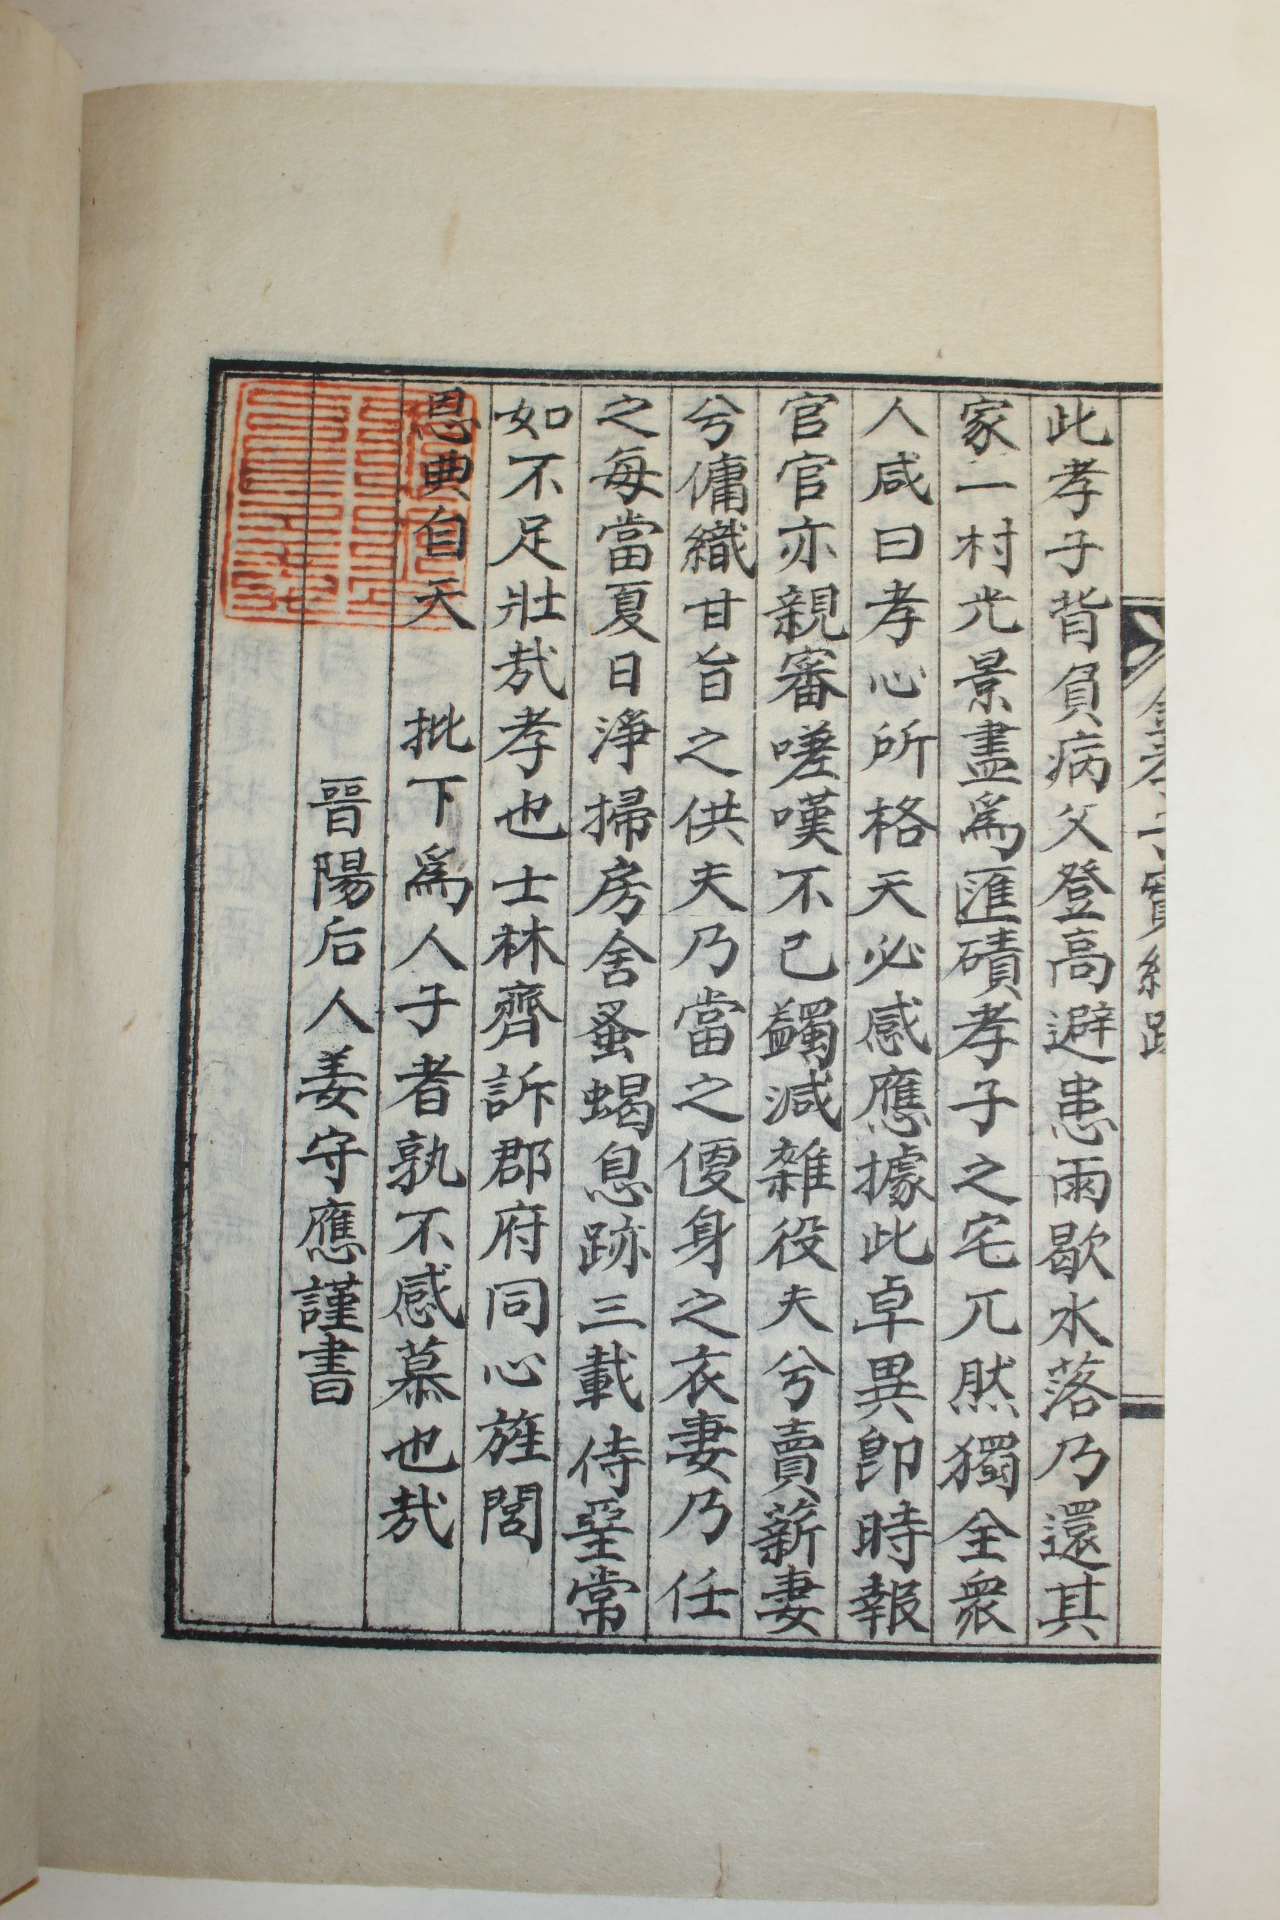 此孝子背負病父登高避患雨歇水落乃還其
家一村光景盡爲匯磧孝子之宅兀然獨全衆
人咸曰孝心所格天必感應據此卓異卽時報
官官亦親審嗟嘆不已蠲減雜役夫兮賣薪妻
兮傭織甘旨之供夫乃當之便身之衣妻乃任
之每當夏日淨掃房舍蚤蝎息跡三載侍堊常
如不足壯哉孝也士林齊訴郡府同心旌閭
恩典自天 批下爲人子者孰不感慕也哉
晉陽后人姜守應謹書